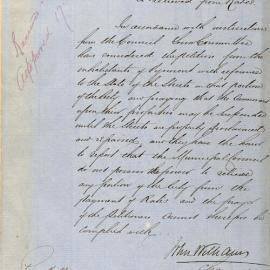 relieved from Rates
In accordance with instructions
from the Council Your Committee
have considered the petition from the
inhabitants of Pyrmont with reference
to the State of the Streets in that portion
of the City, and praying that the
upon their properties may be suspended
until the Streets are properly
and repaired, and they have the honor
to report that the Municipal Council
do not possess the power to release
any portion of the City from the
payment of Rates and the prayer
of the Petitioners cannot therefore be
complied with.
John Williams